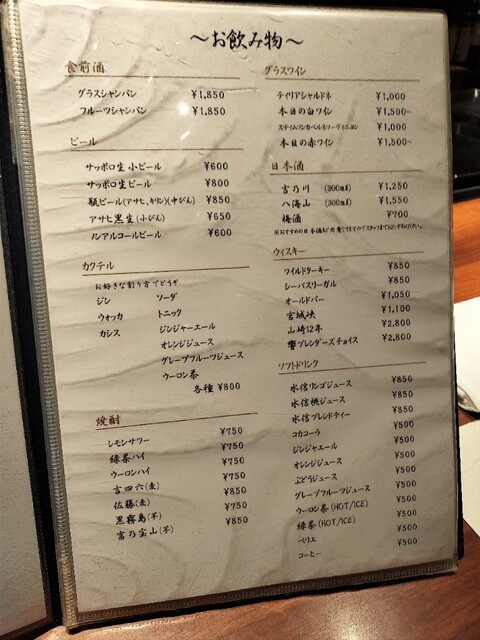 ～お飲み物～
食前酒
グラスシャンパン ¥1,850
フルーツシャンパン ¥1,850
ビール
サッポロ生 小ビール ¥600
サッポロ生ビール ¥800
瓶ビール(アサヒ,キリン)(中びん) ¥850
アサヒ黒生(小びん) ¥650
ノンアルコールビール ¥600
カクテル
お好きな割り方でどうぞ
ジン ソーダ
ウォッカ トニック
カシス ジンジャーエール
オレンジジュース
グレープフルーツジュース
ウーロン茶
各種 ¥800
焼酎
レモンサワー ¥750
緑茶ハイ ¥750
ウーロンハイ ¥750
吉四六(麦) ¥850
佐藤(麦) ¥750
黒霧島(芋) ¥850
富乃宝山(芋)
グラスワイン
テイリアシャルドネ ¥1,000
本日の白ワイン ¥1,500~
スティムソンカベルネソーヴィニヨン ¥1,000
本日の赤ワイン ¥1,500~
日本酒
吉乃川 (300ml) ¥1,250
八海山 (300ml) ¥1,550
梅酒 ¥700
ウィスキー
ワイルドターキー ¥850
シーバスリーガル ¥850
オールドパー ¥1,050
宮城峡 ¥1,100
山崎12年 ¥2,800
響ブレンダーズチョイス ¥2,800
ソフトドリンク
水信リンゴジュース ¥850
水信桃ジュース ¥850
水信ブレンドティー ¥850
コカコーラ ¥500
ジンジャエール ¥500
オレンジジュース ¥500
ぶどうジュース ¥500
グレープフルーツジュース ¥500
ウーロン茶(HOT/ICE) ¥500
緑茶(HOT/ICE) ¥500
ペリエ ¥500
コーヒー ¥500